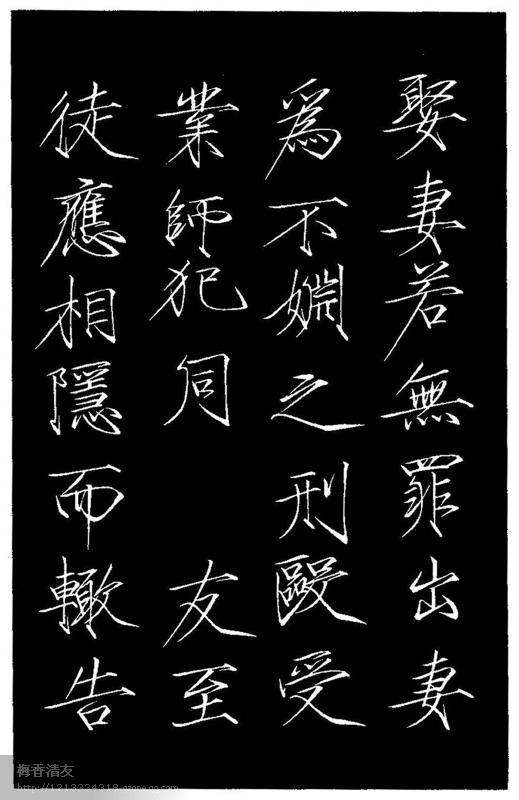 娶妻若無罪出妻
為不嫻之刑毆受
業師犯同 友至
徒應相隱而轍告
梅香清友
http://1213334318.qzone.qq.com